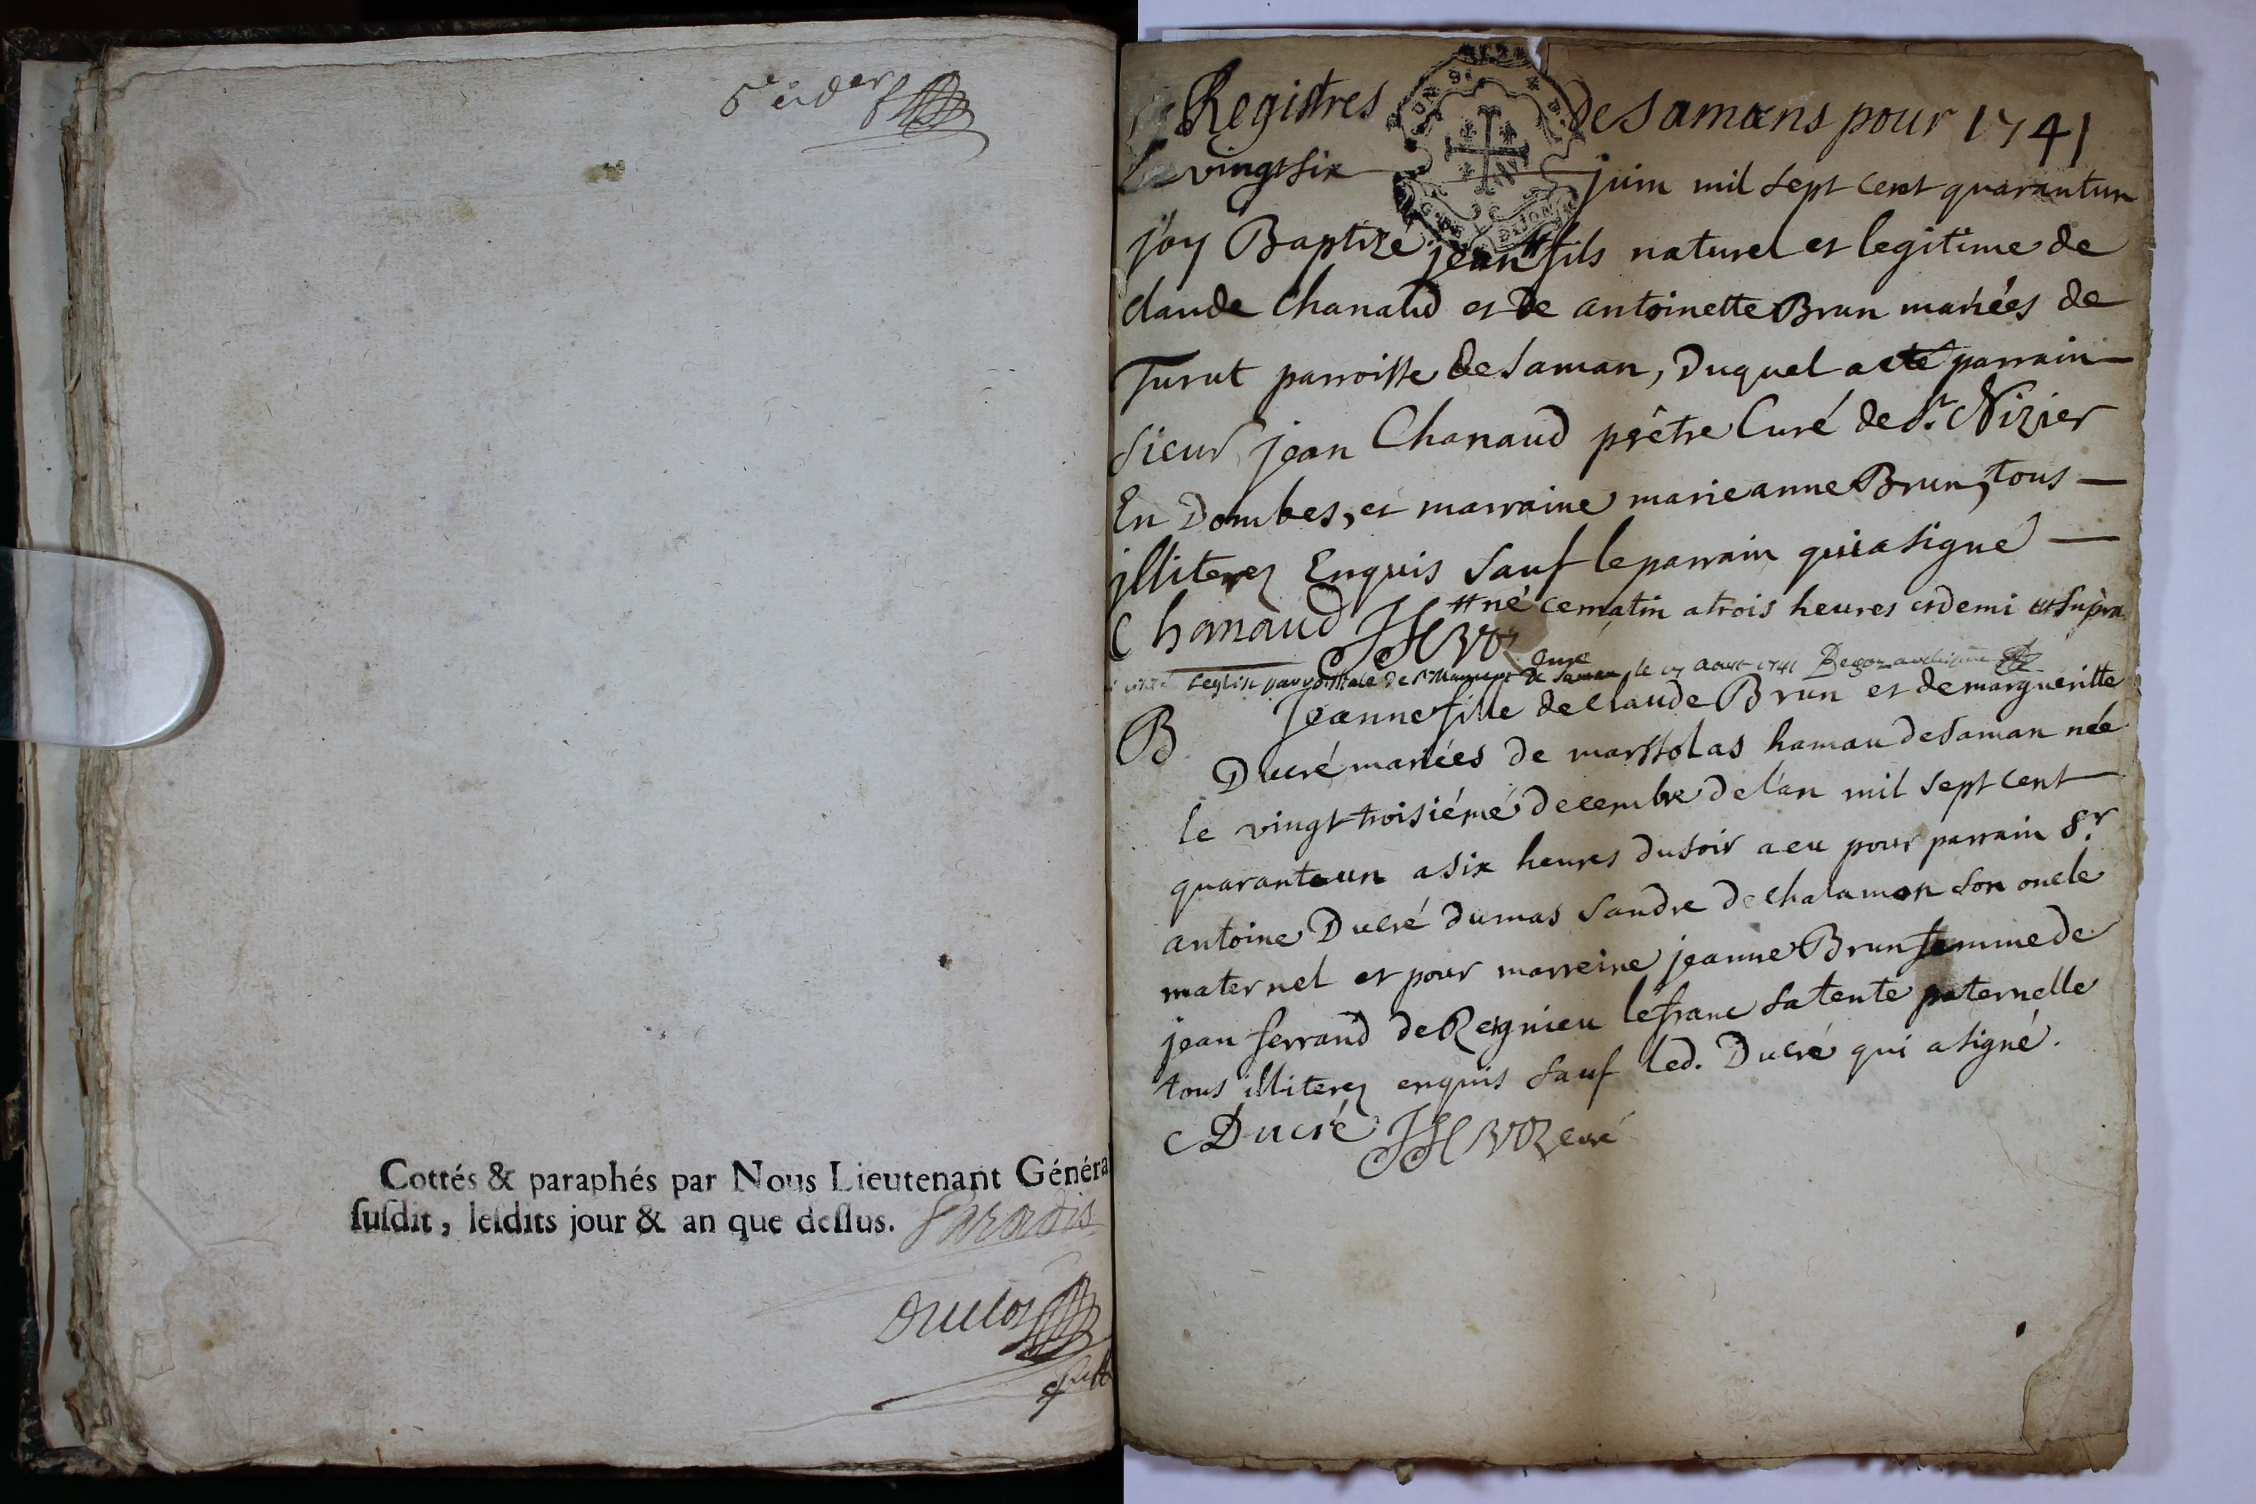 Cottés & paraphés par Nous Lieutenant Généra
susdit, lesdits jour & an que dessus. Paradis
Registres de samans pour 1741
Le vingt six juin mil sept cent quarantun
j'ay Baptizé jean # fils naturel et legitime de
claude Chanaud et De antoinette Brun mariées de
Turut parroisse de saman, Duquel a eté parrain
sieur jean Chanaud prêtre Curé de St. Nizier
En Dombes, et marraine marieanne Brun, tous
illiterez Enquis sauf le parrain qui a signé
Chanaud # né ce matin a trois heures et demi ut supra
curé
leglise parroissiale de de saman, le aoust 1741
B Jeanne fille de claude Brun et de margueritte
Ducré mariées de marssolas hamau de saman née
le vingt troisiémé decembre de l'an mil sept cent
quarante un a six heures du soir a eu pour parrain Sr.
antoine Ducré dumas sandre de chalamon son oncle
maternel et pour marreine jeanne Brun femme de
jean ferrand de Reignieu lefranc sa tente paternelle
tous illiterez enquis sauf led. Ducré qui a signé.
Ducré curé